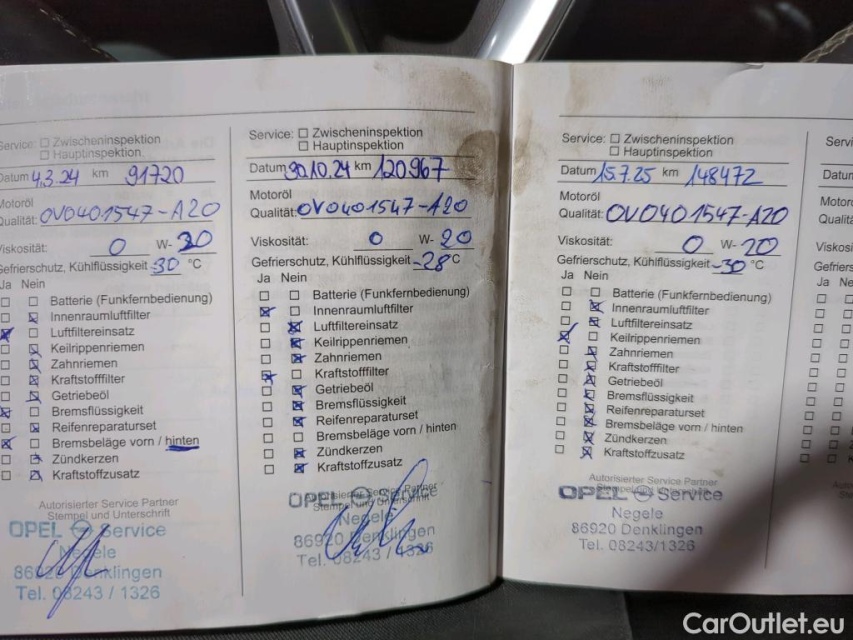 Service: Zwischeninspektion
Hauptinspektion
Datum 4.3.24 km 91720
Motoröl
Qualität: OVO401547-A20
Viskosität: 0 W- 20
Gefrierschutz, Kühlflüssigkeit -30 °C
Ja Nein
Batterie (Funkfernbedienung)
Innenraumluftfilter
Luftfiltereinsatz
Keilrippenriemen
Zahnriemen
Kraftstofffilter
Getriebeöl
Bremsflüssigkeit
Reifenreparaturset
Bremsbeläge vorn / hinten
Zündkerzen
Kraftstoffzusatz
Autorisierter Service Partner
Stempel und Unterschrift
OPEL Service
Negele
86920 Denklingen
Tel. 08243 / 1326
Service: Zwischeninspektion
Hauptinspektion
Datum 30.10.24 km 120967
Motoröl
Qualität: OVO401547-A20
Viskosität: 0 W- 20
Gefrierschutz, Kühlflüssigkeit -28 °C
Ja Nein
Batterie (Funkfernbedienung)
Innenraumluftfilter
Luftfiltereinsatz
Keilrippenriemen
Zahnriemen
Kraftstofffilter
Getriebeöl
Bremsflüssigkeit
Reifenreparaturset
Bremsbeläge vorn / hinten
Zündkerzen
Kraftstoffzusatz
Autorisierter Service Partner
Stempel und Unterschrift
OPEL Service
Negele
86920 Denklingen
Tel. 08243 / 1326
Service: Zwischeninspektion
Hauptinspektion
Datum 15.7.25 km 148472
Motoröl
Qualität: OVO401547-A20
Viskosität: 0 W- 20
Gefrierschutz, Kühlflüssigkeit -30 °C
Ja Nein
Batterie (Funkfernbedienung)
Innenraumluftfilter
Luftfiltereinsatz
Keilrippenriemen
Zahnriemen
Kraftstofffilter
Getriebeöl
Bremsflüssigkeit
Reifenreparaturset
Bremsbeläge vorn / hinten
Zündkerzen
Kraftstoffzusatz
Autorisierter Service Partner
OPEL Service
Negele
86920 Denklingen
Tel. 08243/1326
Ja Nein
CarOutlet.eu